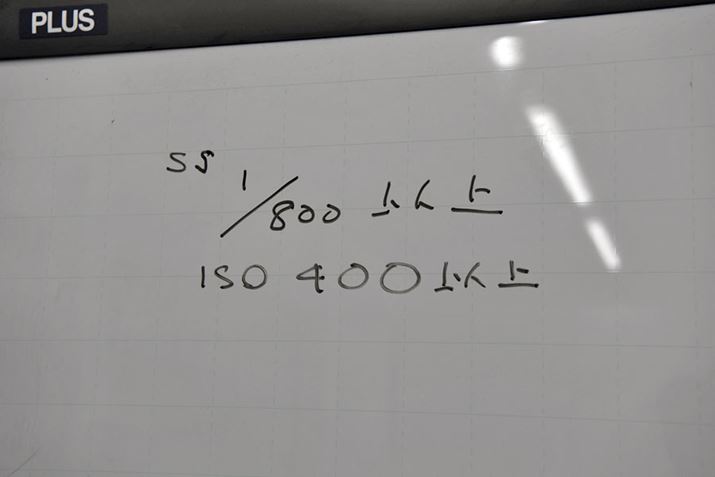 PLUS
SS 1/800 以上
ISO 400 以上